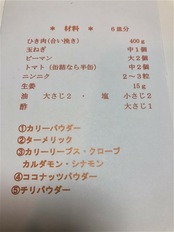 ＊ 材料 ＊ 6皿分
ひき肉(合い挽き) 400g
玉ねぎ 中1個
ピーマン 大2個
トマト(缶詰なら半缶) 中2個
ニンニク 2～3粒
生姜 15g
油 大さじ2・ 塩 小さじ2
酢 大さじ1
①カリーパウダー
②ターメリック
③カリーリーブス・クローブ
カルダモン・シナモン
④ココナッツパウダー
⑤チリパウダー